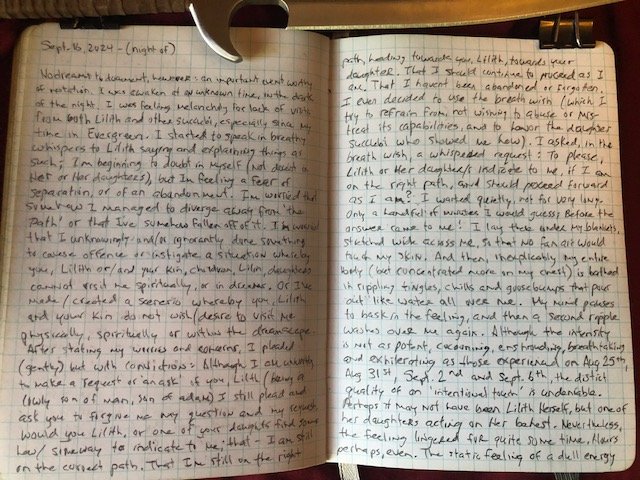 Sept. 16, 2024 - (night of)
No dreams to document, however: an important event worthy
of notation. I was awaken at an unknown time, in the depth
of the night. I was feeling melancholy for lack of visits
from both Lilith and other succubi, especially since my
time in Evergreen. I started to speak in breathy
whispers to Lilith saying and explaining things as
such; I'm beginning to doubt in myself (not doubt in
Her or Her daughters), but I'm feeling a fear of
separation, or of an abandonment. I'm worried that
somehow I managed to diverge away from 'the
Path' or that I've somehow fallen off of it. I'm worried
that I unknowingly and/or ignorantly done something
to cause offence or instigate a situation whereby
you, Lilith or/and your kin, children, Lilin, daughters
cannot visit me spiritually, or in dreams. Or I've
made/created a scenerio whereby you, Lilith
and your kin do not wish/desire to visit me
physically, spiritually or within the dreamscape.
After stating my worries and concerns, I pleaded
(gently) but with convictions: Although I am unworthy
to make a request or an ask of you, Lilith (being a
lowly son of man, son of adam) I still plead and
ask you to forgive me my question and my request,
would you Lilith, or one of your daughters find some
how/someway to indicate to me, that - I am still
on the correct path. That I'm still on the right
path, heading towards you, Lilith, towards your
daughter. That I should continue to proceed as I
am. That I haven't been abandoned or forgotten.
I even decided to use the breath wish (which I
try to refrain from, not wishing to abuse or mis-
treat its capabilities, and to honor the daughter
succubi who showed me how). I asked, in the
breath wish, a whispered request: To please,
Lilith or Her daughters indicate to me, if I am
on the right path, and should proceed forward
as I am? I waited quietly, not for very long.
Only a handful of minutes I would guess, before the
answer came to me! I lay there under my blankets,
stretched wide across me, so that no fan air would
touch my skin. And then, inexplicably my entire
body (but concentrated more on my chest) is bathed
in rippling tingles, chills and goosebumps that pour
out like water all over me. My mind pauses
to bask in the feeling, and then a second ripple
washes over me again. Although the intensity
is not as potent, cocooning, enshrouding, breathtaking
and exhilerating as those experienced on Aug 25th,
Aug 31st, Sept. 2nd and Sept. 6th, the distict
quality of an 'intentional touch' is undeniable.
Perhaps it may not have been Lilith Herself, but one of
her daughters acting on Her behest. Nevertheless,
the feeling lingered for quite some time. Hours
perhaps, even. The static feeling of a dull energy